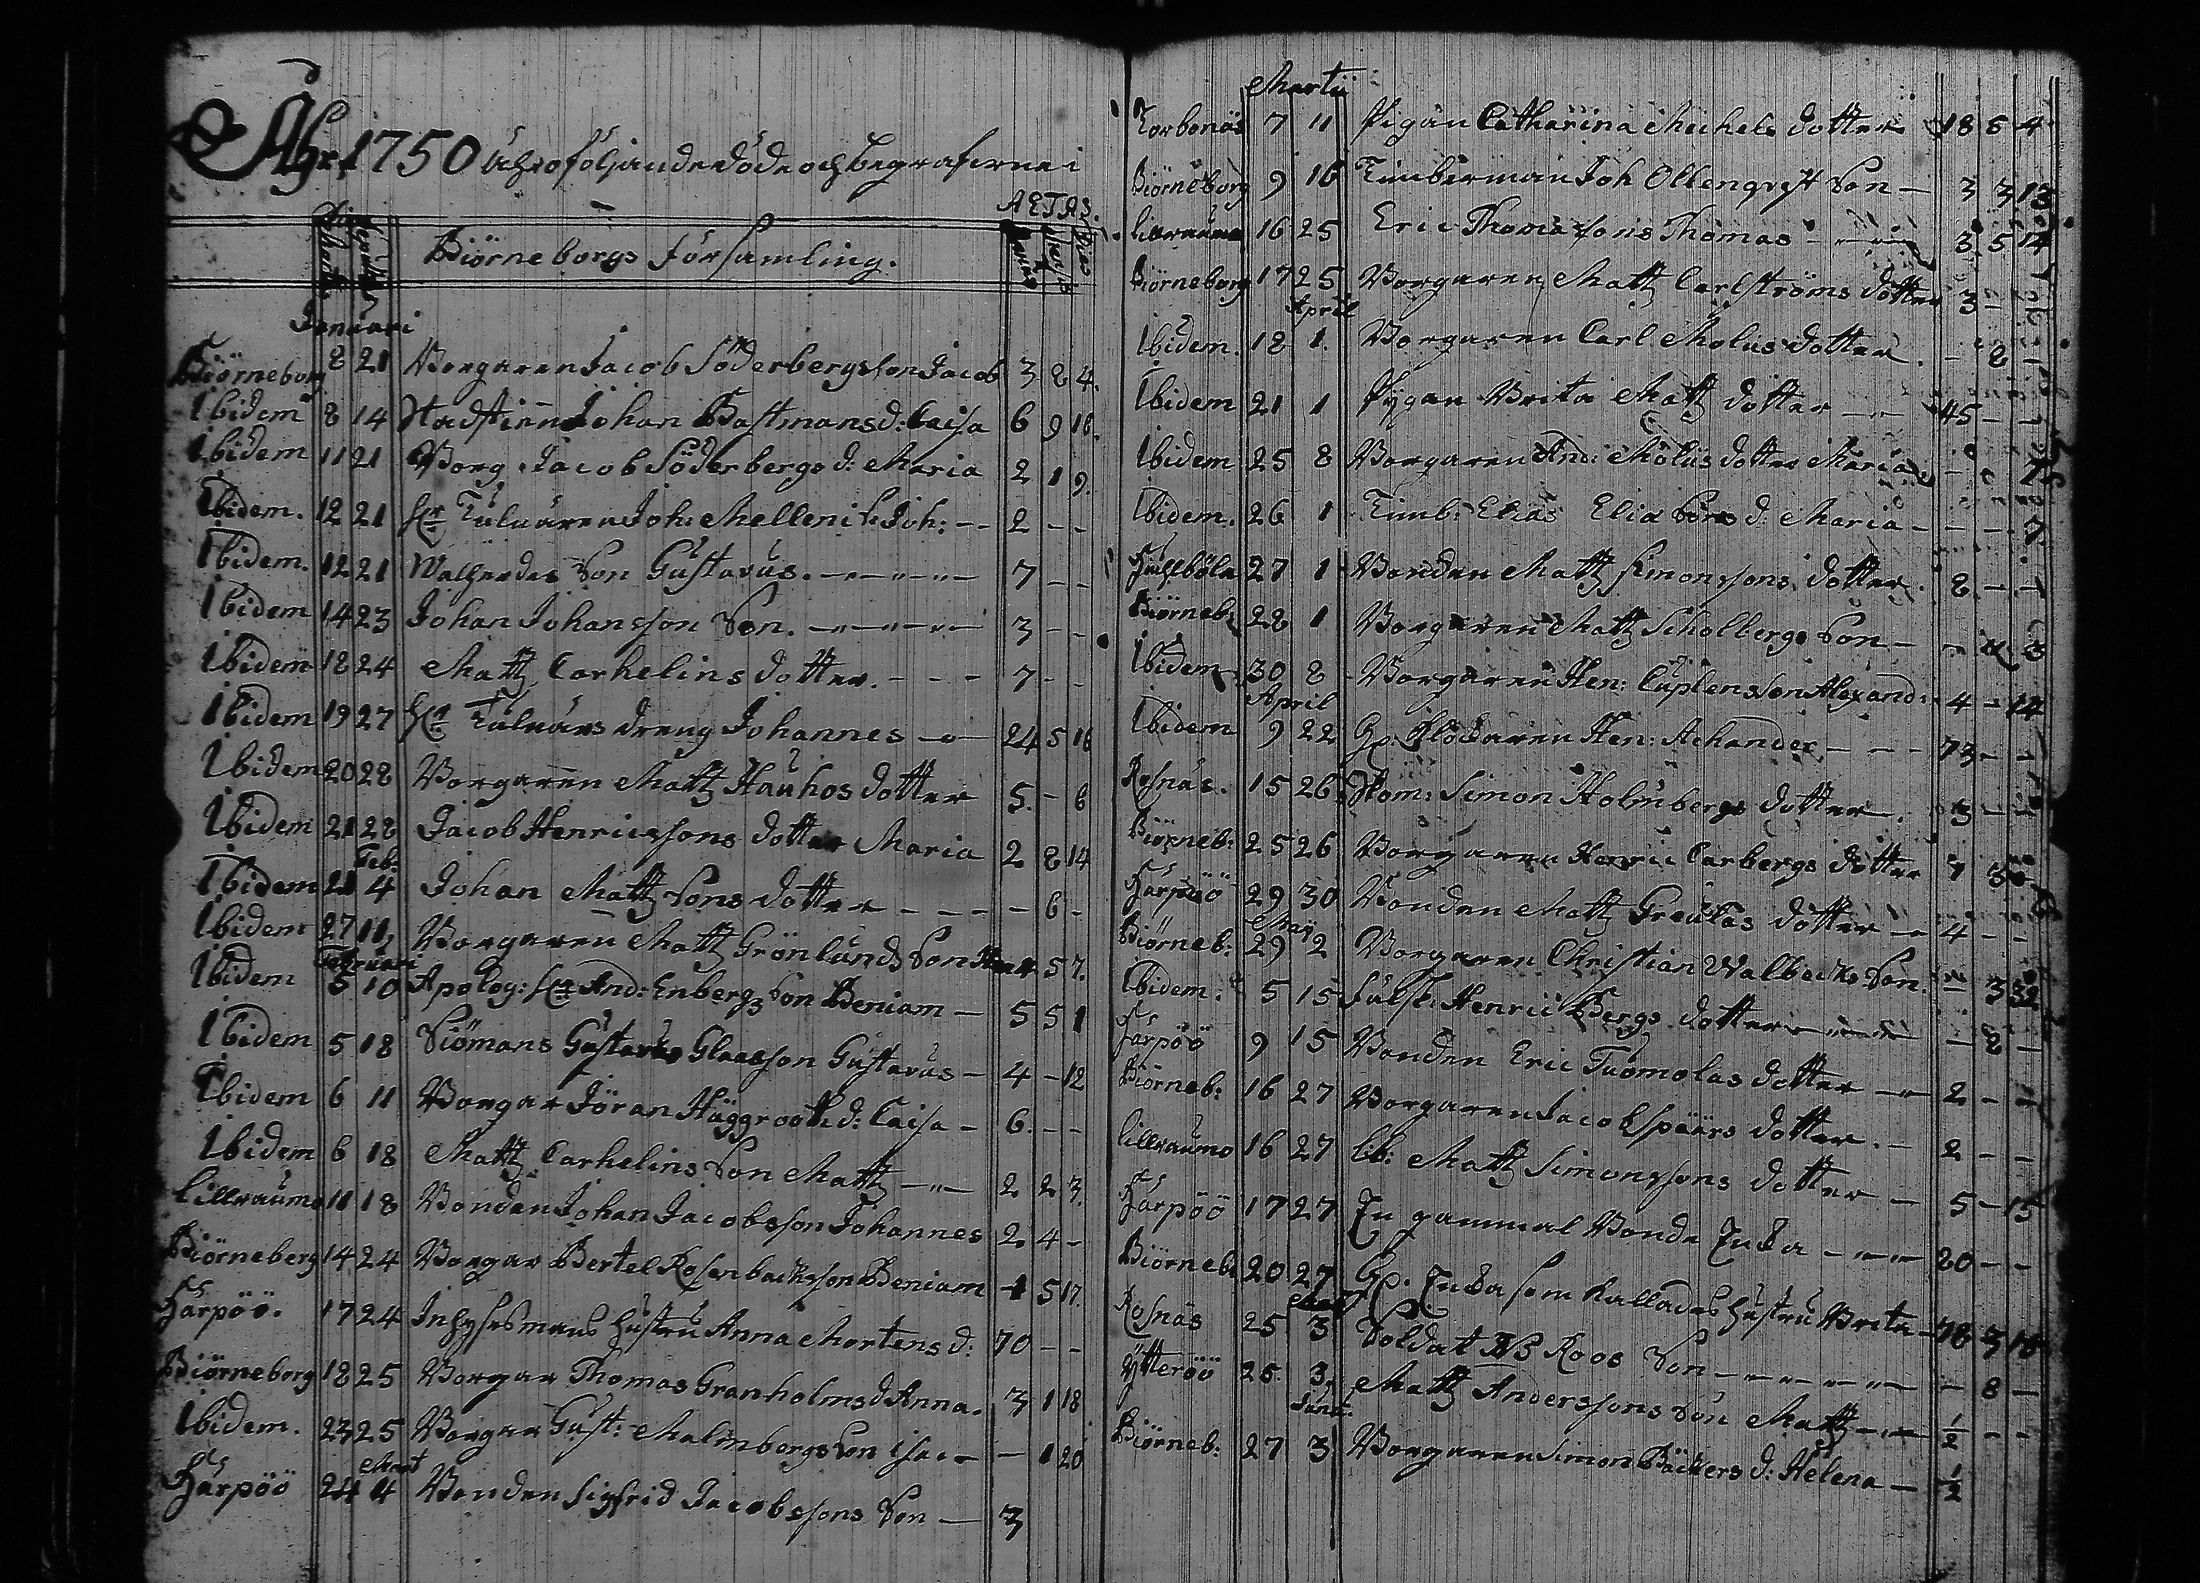 Åhr 1750 ähro följande döde och begrafne i
AETAS.
Biörneborgs Församling.
Januari
Biörneborg 8 21 Borgaren Jacob Söderbergs son Jacob 3 8 4.
Ibidem 8 14 Johan Bastmans d: Caisa 6 9 18.
Ibidem 11 21 Borg. Jacob Söderbergs d: Maria 2 1 9.
Ibidem. 12 21 Joh: Melleni S. Joh: -- 2 - -
Ibidem. 12 21 Son Gustavus. - - - 7 - -
Ibidem 14 23 Johan Johansson Son. - - - 3 - -
Ibidem 18 24 Matz Carhelins dotter. - - - 7 - -
Ibidem 19 27 dreng Johannes - 24 5 16
Ibidem 20 28 Borgaren Matz Hauhos dotter 5. - 6
Ibidem 21 28 Jacob Henricssons dotter Maria 2 8 14
Feb:
Ibidem 21 4 Johan Matz Sons dotter - - - - 6 -
Ibidem 27 11. Borgaren Matz Grönlunds Son 4 5 7.
Februari
Ibidem 5 10 Apolog: Hr And: Enbergs Son Beniam - 5 5 1
Ibidem 5 18 Siömans Gustavus Glaasson Gustavus - 4 - 12
Ibidem 6 11 Borgar Jöran Häggrooth d: Caisa - 6. - -
Ibidem 6 18 Matz Carhelins Son Matz - 2 2 3.
Lillraumo 11 18 Bonden Johan Jacobsson Johannes 2. 4 -
Biörneborg 14 24 Borgar Bertel Rosenbacks son Beniam 1 5 17.
Harpöö. 17 24 Inhysesmans hustru Anna Mortens d: 70 - -
Biörneborg 18 25 Borgar Thomas Granholms d Anna. 3 1 18
Ibidem. 23 25 Borgar Gust: Malmbergs Son Isac - - 1 20
Mart
Harpöö 24 4 Bonden Sigfrid Jacobssons Son - 3
Martii
Torbonäs 7 11 Pigan Catharina Michels dotter 18 5 4
Biörneborg 9 16 Timberman Joh Ollenqvist Son - 3 3 13
Lillraumo 16 25 Eric Thomassons Thomas - 3 5 14
Biörneborg 17 25 Borgaren Matz Carlströms dotter 3 -
April
Ibidem. 18 1. Borgaren Carl Molus dotter. - 8 -
Ibidem 21 1 Pigan Brita Matz dotter - 45 - -
Ibidem 25 8 Borgaren And: Molus dotter Maria -
Ibidem. 26 1 Timb: Elias Elia Sons d: Maria - - - 7
27 1 Bonden Matz Simonssons dotter. 8 - -
Biörneb: 28 1 Borgaren Matz Scholbergs Son -
Ibidem 30 8 Borgaren Hen: Cuplens son Alexand: 4 - 14
April
Ibidem 9 22 Hen: Achander - - 73 - -
Rosnäs. 15 26 Simon Holmbergs dotter. 3 - -
Biörneb: 25 26 Borgaren Henric Carbergs dotter
Harpöö 29 30 Bonden Matz Greutas dotter - 4 - -
May
Biörneb: 29 2 Borgaren Christian Walbecks Son.
Ibidem. 5 15 Henric Bergs dotter - - 8 -
Harpöö 9 15 Bonden Eric Tuomolas dotter - 2 - -
Biörneb: 16 27 Borgaren Jacob Spåårs dotter. - 2 - -
Lillraumo 16 27 Matz Simonssons dotter - 5 - 15
Harpöö 17 27 En gammal Bonde Enka - 80 - -
Biörneb: 20 27 Enka som kallades hustru Brita 78 3 18
Rosnäs 25 3 Soldat Roos Son - - 8 -
Ytteröö 25. 3. Matz Anderssons Son Matz - 1/2 - -
Juni:
Biörneb: 27 3 Borgaren Simon Bäckers d: Helena - 1/2